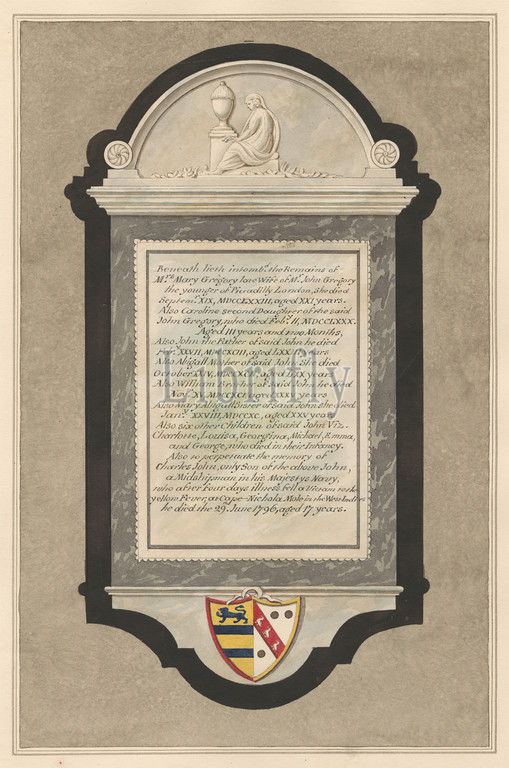 Beneath lieth intomb'd the Remains of
Mrs Mary Gregory late Wife of Mr John Gregory
the younger of Picadilly London, she died
Septemr XIX, aged XXI years.
Also Caroline second Daughter of the said
John Gregory, who died Febry II, MDCCLXXX.
Aged III years and two Months,
Also John the Father of said John he died
XXVII, aged years
Also Abigall Mother of said John, she died
October XXIV, aged LXX years
Also William Brother of said John he died
Novr XI, aged XXXV years,
Also Mary Abigall Sister of said John she died
Janry XXVIII, MDCCXC, aged XXV years.
Also six other Children of said John Viz.
Charlotte, Louisa, Georgina, Michael, Emma,
and George, who died in their Infancy.
Also to perpetuate the memory of
Charles John, only Son of the above John,
a Midshipman in his Majestys Navy,
who after four days illness fell a Victim to the
yellow Fever, at Cape Nichola Mole in the West Indies
he died the 29. June 1796, aged 17 years.
Librifly